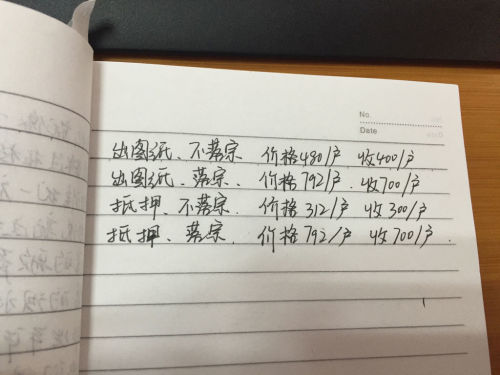 No.
Date
出图纸、不落宗 价格480/户 收400/户
出图纸、落宗. 价格792/户. 收700/户
抵押、不落宗. 价格312/户 收300/户
抵押、落宗. 价格792/户 收700/户.